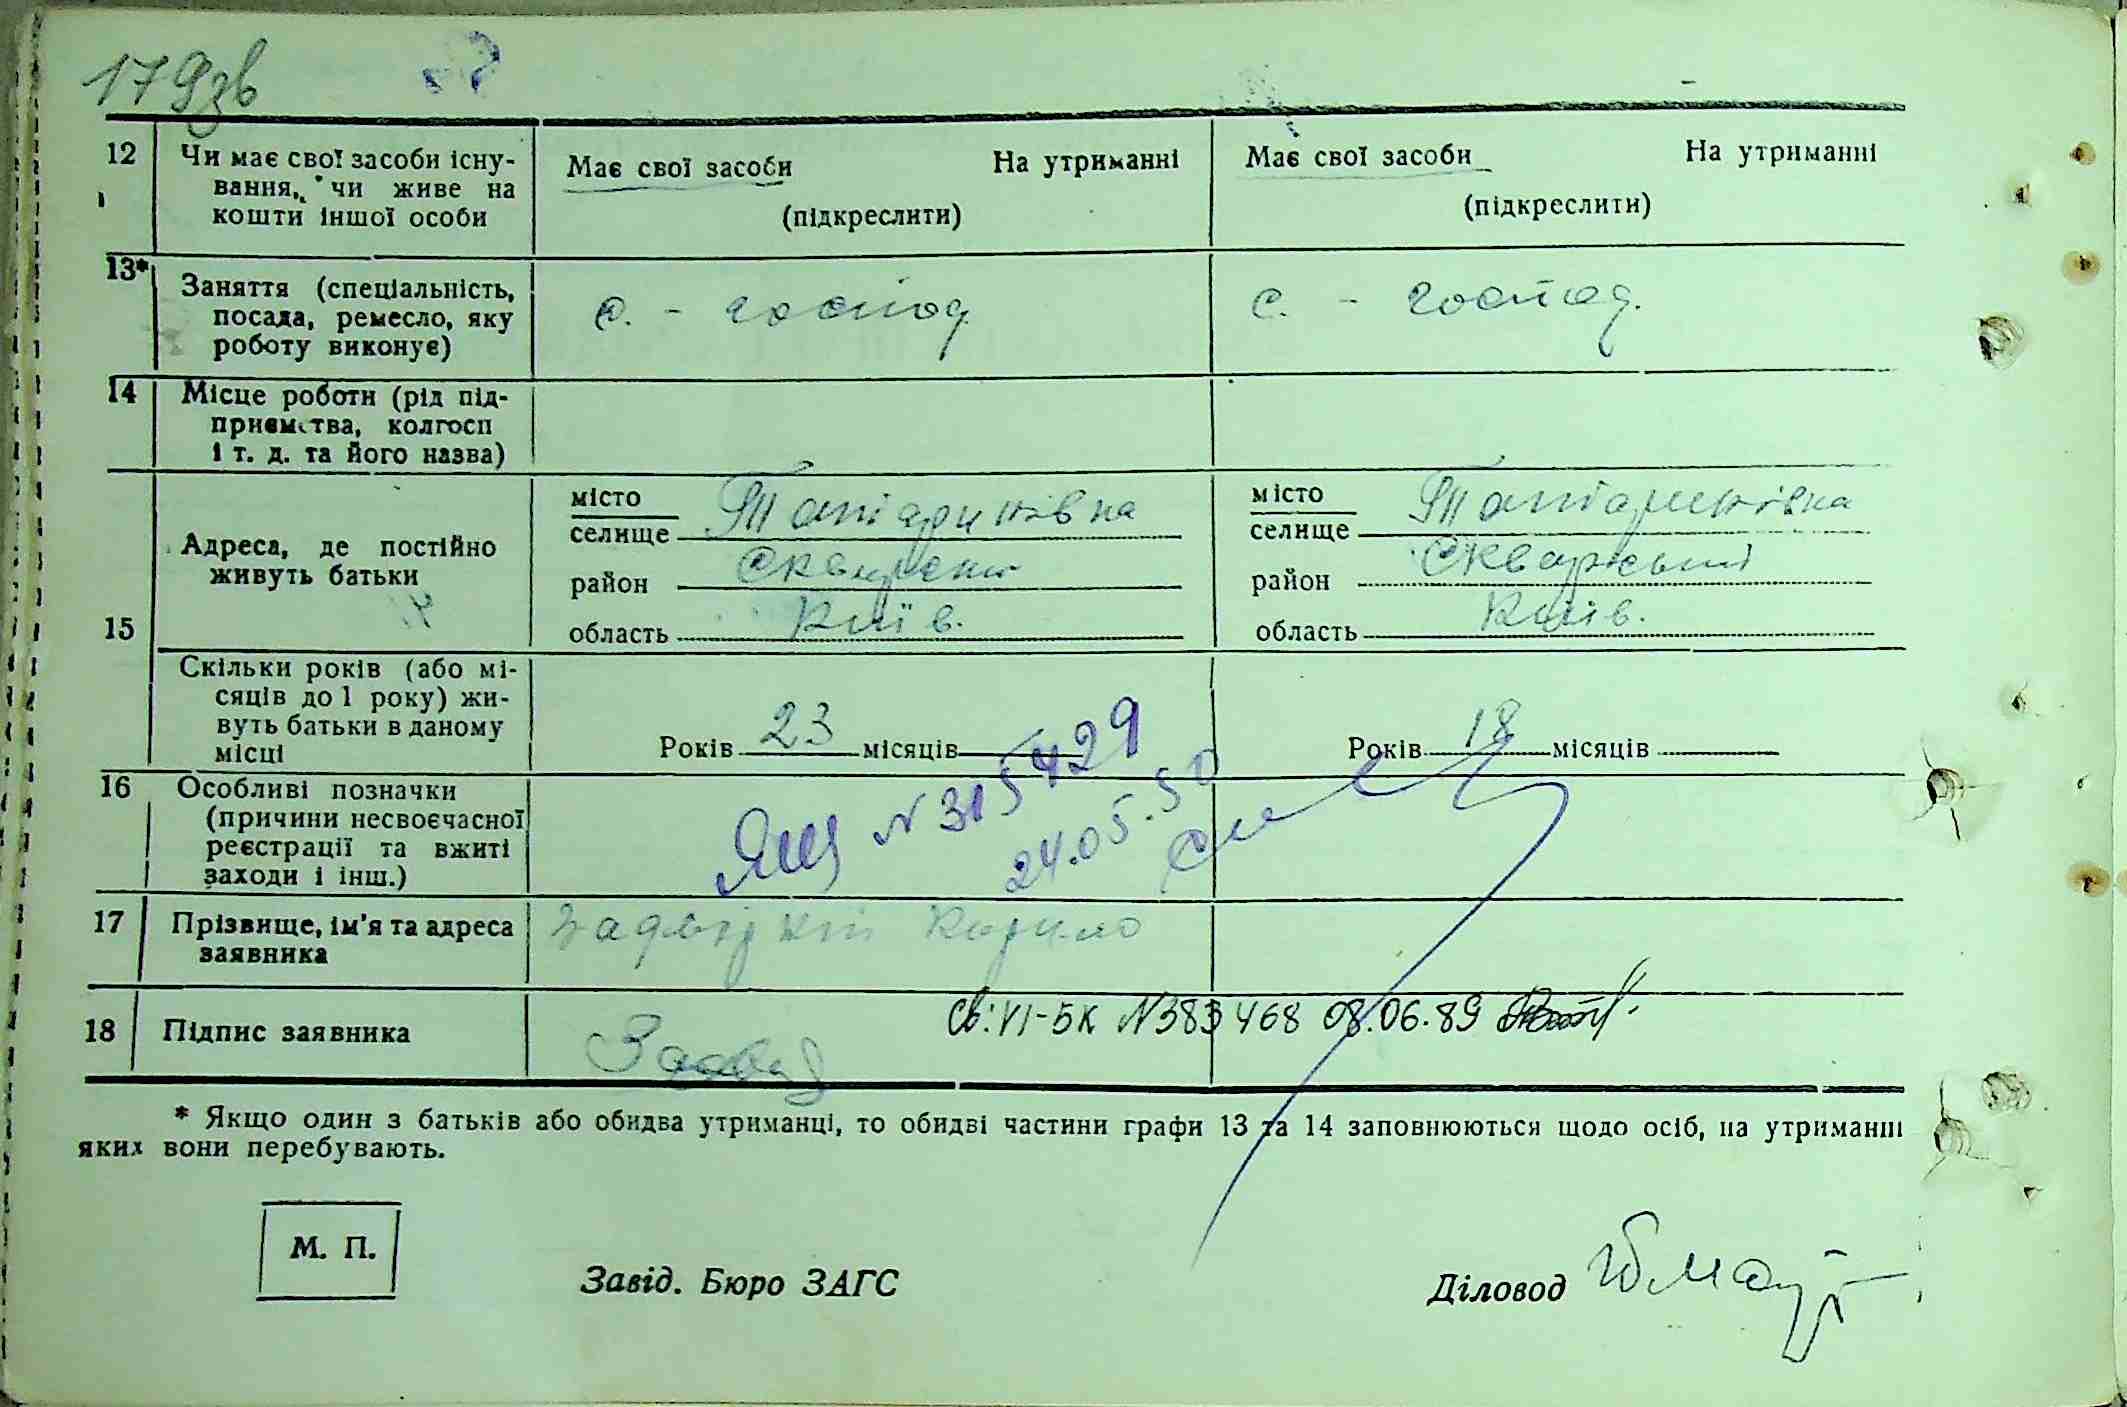 179зв
12 Чи має свої засоби існу-
вання, чи живе на
кошти іншої особи
Має свої засоби На утриманні
(підкреслити)
Має свої засоби На утриманні
(підкреслити)
13* Заняття (спеціальність,
посада, ремесло, яку
роботу виконує)
с. - господ.
с. - господ.
14 Місце роботи (рід під-
приємства, колгосп
і т. д. та його назва)
15 Адреса, де постійно
живуть батьки
місто
селище Татаринівка
район Сквирськ
область Київ.
місто
селище Татаринівка
район Сквирський
область Київ.
Скільки років (або мі-
сяців до 1 року) жи-
вуть батьки в даному
місці
Років 23 місяців
Років 18 місяців
16 Особливі позначки
(причини несвоєчасної
реєстрації та вжиті
заходи і інш.)
N 315429
24.05.50
17 Прізвище, ім'я та адреса
заявника
Кирило
18 Підпис заявника
Св: VI-БК N 383468 08.06.89
* Якщо один з батьків або обидва утриманці, то обидві частини графи 13 та 14 заповнюються щодо осіб, на утриманні
яких вони перебувають.
М. П.
Завід. Бюро ЗАГС
Діловод